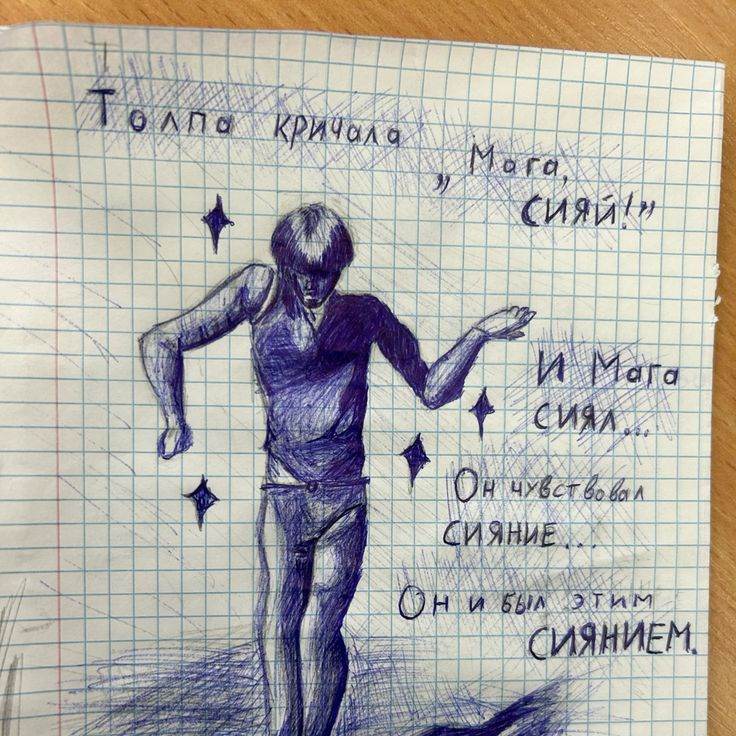 Толпа кричала
„Мага,
сияй!”
И Мага
сиял...
Он чувствовал
сияние...
Он и был этим
сиянием.